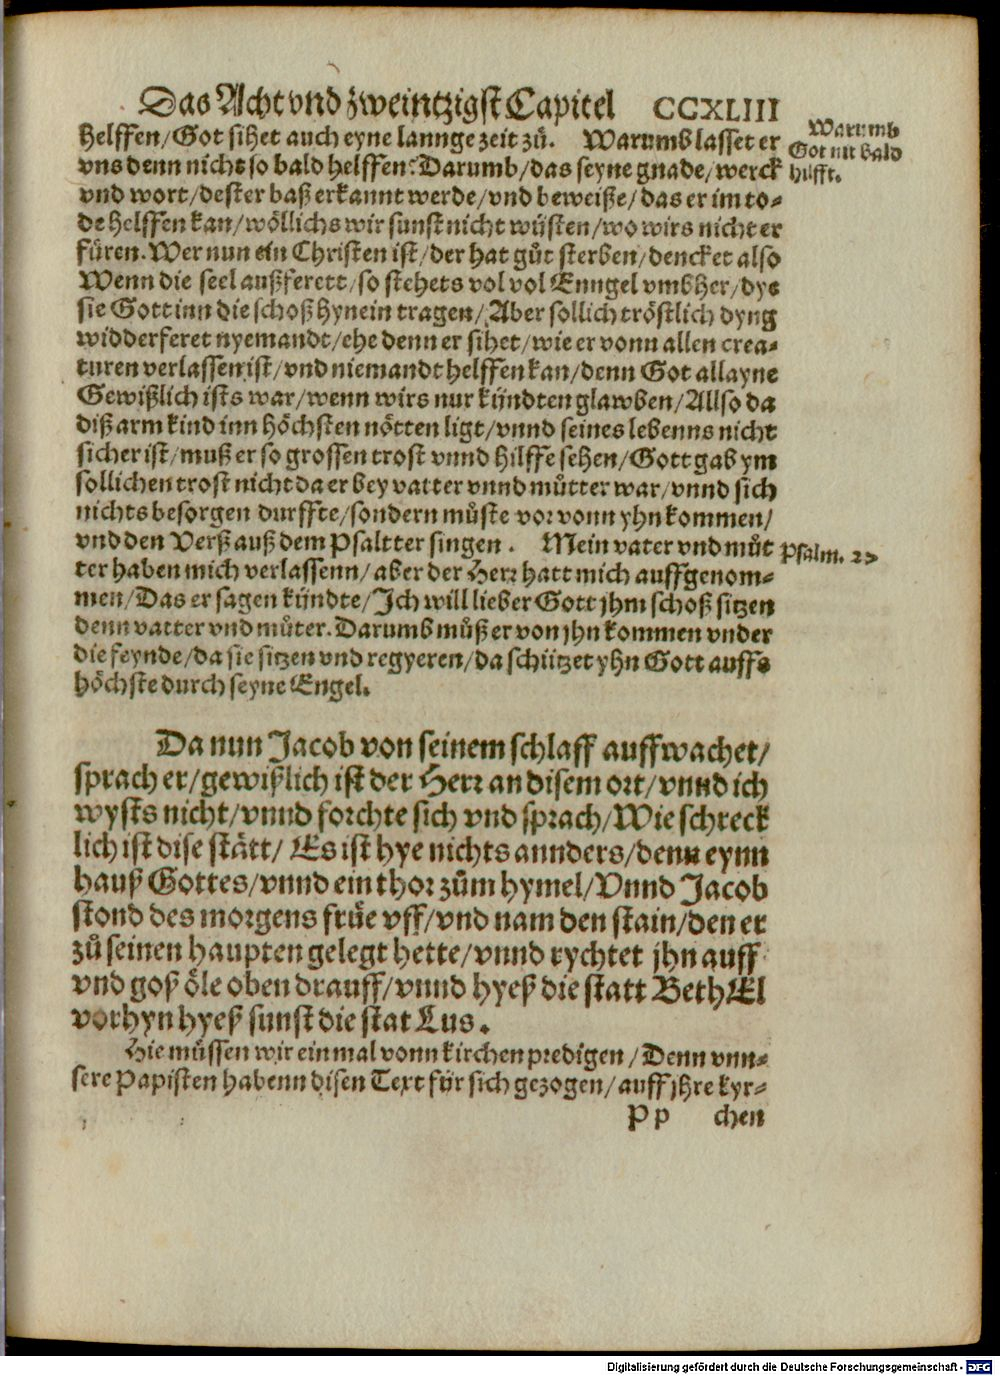 Das Acht vnd zweintzigst Capitel CCXLIII
helffen/Got sihet auch eyne lannge zeit zů. Warumb lasset er
vns denn nicht so bald helffen? Darumb/das seyne gnade/werck
vnd wort/dester baß erkannt werde/vnd beweiße/das er im to-
de helffen kan/wöllichs wir sunst nicht wüsten/wo wirs nicht er
füren. Wer nun ein Christen ist/der hat gůt sterben/dencket also
Wenn die seel außferett/so stehets vol vol Enngel vmbher/dye
sie Gott inn die schoß hynein tragen/Aber sollich tröstlich dyng
widderferet nyemandt/ehe denn er sihet/wie er vonn allen crea-
turen verlassen ist/vnd niemandt helffen kan/denn Got allayne
Gewißlich ists war/wenn wirs nur kündten glawben/Allso da
diß arm kind inn höchsten nötten ligt/vnnd seines lebenns nicht
sicher ist/muß er so grossen trost vnnd hilffe sehen/Gott gab ym
sollichen trost nicht da er bey vatter vnnd můtter war/vnnd sich
nichts besorgen durffte/sondern můste vor vonn yhn kommen/
vnd den Verß auß dem Psaltter singen. Mein vater vnd můt
ter haben mich verlassenn/aber der Herr hatt mich auffgenom-
men/Das er sagen kündte/Ich will lieber Gott jhm schoß sitzen
denn vatter vnd můter. Darumb můß er von jhn kommen vnder
die feynde/da sie sitzen vnd regyeren/da schützet yhn Gott auffs
höchste durch seyne Engel.
Warumb
Got nit bald
hilfft.
Psalm. 27
Da nun Jacob von seinem schlaff auffwachet/
sprach er/gewißlich ist der Herr an disem ort/vnnd ich
wysts nicht/vnnd forchte sich vnd sprach/Wie schreck
lich ist dise stätt/ Es ist hye nichts annders/denn eynn
hauß Gottes/vnnd ein thor zům hymel/Vnnd Jacob
stond des morgens früe vff/vnd nam den stain/den er
zů seinen haupten gelegt hette/vnnd rychtet jhn auff
vnd goß öle oben drauff/vnnd hyeß die statt BethEl
vorhyn hyeß sunst die stat Lus.
Hie müssen wir ein mal vonn kirchen predigen/Denn vnn-
sere Papisten habenn disen Text für sich gezogen/auff jhre kyr-
Pp chen
Digitalisierung gefördert durch die Deutsche Forschungsgemeinschaft - DFG